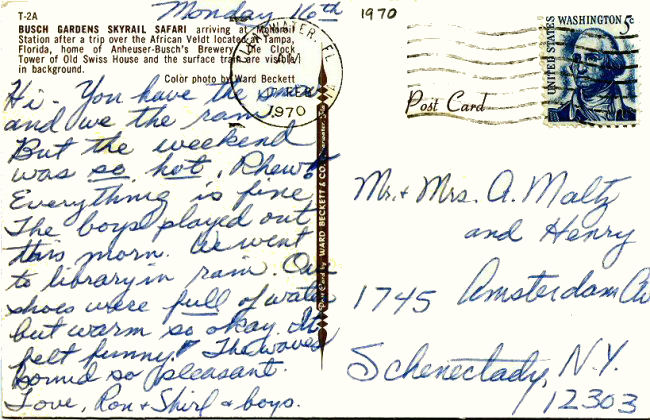 Monday 16th
1970
T-2A
BUSCH GARDENS SKYRAIL SAFARI arriving at Monorail
Station after a trip over the African Veldt located at Tampa,
Florida, home of Anheuser-Busch's Brewery, the Clock
Tower of Old Swiss House and the surface train are visible
in background.
Color photo by Ward Beckett
CLEARWATER, FL
FEB
1970
UNITED STATES
WASHINGTON 5c
Post Card
Post Card by WARD BECKETT & CO.
Hi. You have the snow
and we the rain.
But the weekend
was so hot. Phew!
Everything is fine
The boys played out
this morn. We went
to library in rain. Our
shoes were full of water
but warm so okay. It
felt funny! The waves
sound so pleasant.
Love, Ron + Shirl + boys.
Mr. + Mrs. A. Maltz
and Henry
1745 Amsterdam Av
Schenectady, N.Y.
12303